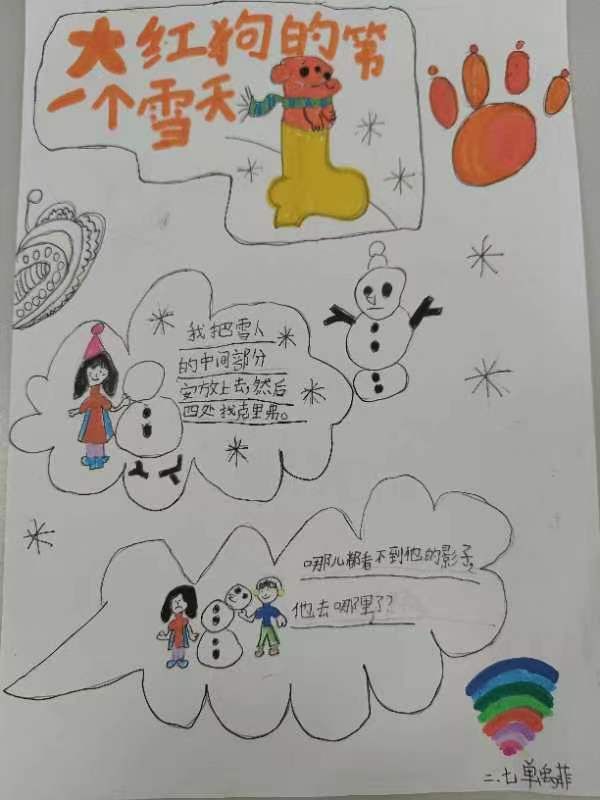 大红狗的第
一个雪天
我把雪人
的中间部分
安放上去,然后
四处找克里弗。
哪儿都看不到他的影子,
他去哪里了?
二.七 单